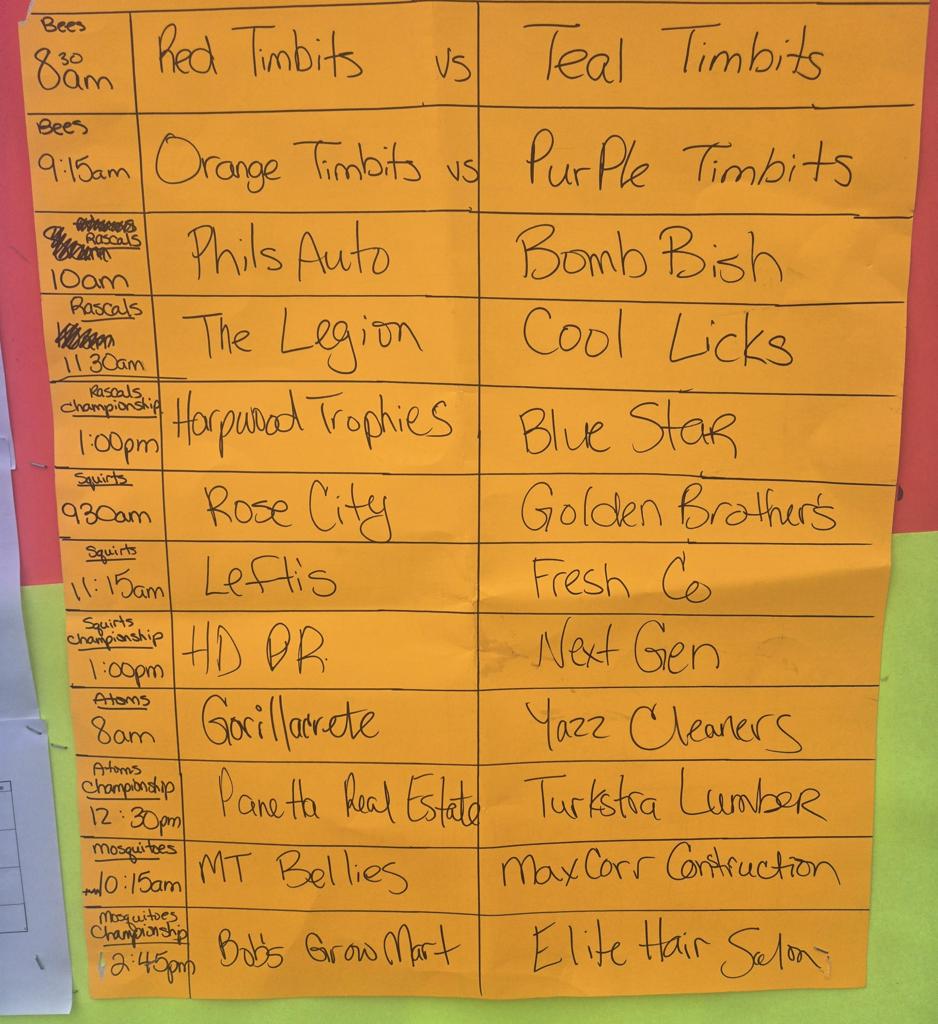 Bees
8:30am Red Timbits vs Teal Timbits
Bees
9:15am Orange Timbits vs PurPle Timbits
Rascals
10am Phils Auto Bomb Bish
Rascals
11 30am The Legion Cool Licks
Rascals
Championship
1:00pm Harpwood Trophies Blue Star
Squirts
930am Rose City Golden Brother's
Squirts
11:15am Leftis Fresh Co
Squirts
Championship
1:00pm HD DR Next Gen
Atoms
8am Gorillacrete Yazz Cleaners
Atoms
Championship
12:30pm Panetta Real Estate Turkstra Lumber
Mosquitoes
10:15am MT Bellies MaxCorr Contruction
Mosquitoes
Championship
2:45pm Bob's Grow Mart Elite Hair Salon